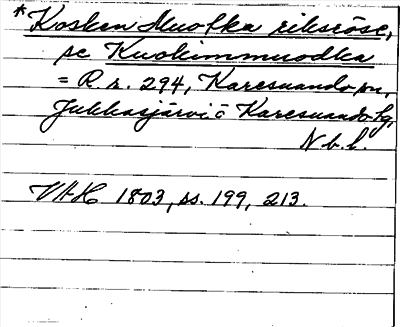 * Kosken Muotka riksröse,
se Kuokimmuodka
= R. r. 294, Karesuando sn,
Jukkasjärvi o Karesuando tg,
Nb. l.
VAH 1803, ss. 199, 213.